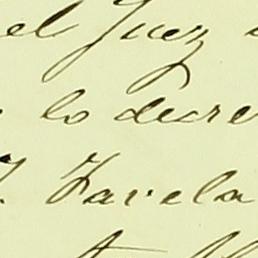 el Juez
lo decre
Favela